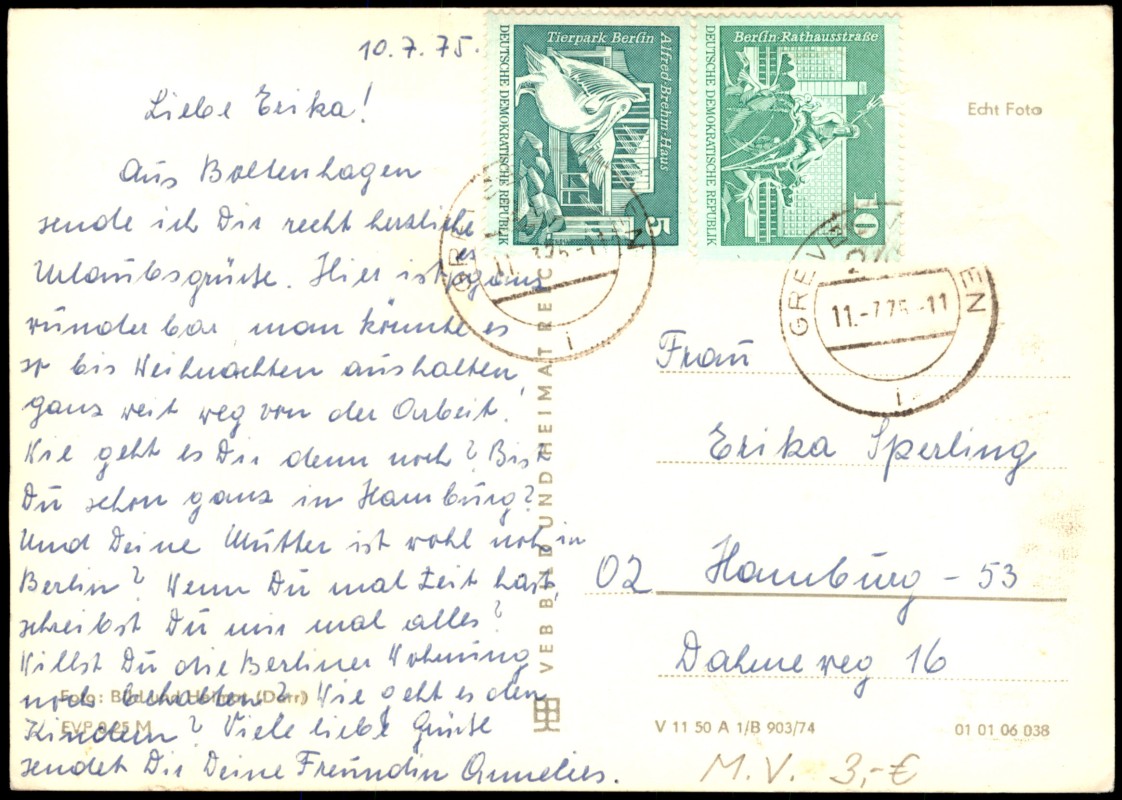 10.7.75.
Liebe Erika!
Aus Boltenhagen
sende ich Dir recht herzliche
Urlaubsgrüße. Hier ist es ganz
wunderbar, man könnte es
so bis Weihnachten aushalten,
ganz weit weg von der Arbeit!
Wie geht es Dir denn noch? Bist
Du schon ganz in Hamburg?
Und Deine Mutter ist wohl noch in
Berlin? Wenn Du mal Zeit hast,
schreibst Du mir mal alles?
Willst Du die Berliner Wohnung
noch behalten? Wie geht es den
Kindern? Viele liebe Grüße
sendet Dir Deine Freundin Annelies.
Foto: Bild und Heimat (Dörr)
EVP 0,25 M
VEB BILD UND HEIMAT REIC
Tierpark Berlin
Alfred-Brehm-Haus
DEUTSCHE DEMOKRATISCHE REPUBLIK
5
Berlin-Rathausstraße
DEUTSCHE DEMOKRATISCHE REPUBLIK
10
GREVE
NEN
11.-7.75-11
i
i
Echt Foto
Frau
Erika Sperling
02 Hamburg - 53
Dahmeweg 16
V 11 50 A 1/B 903/74
01 01 06 038
M.V. 3,-€